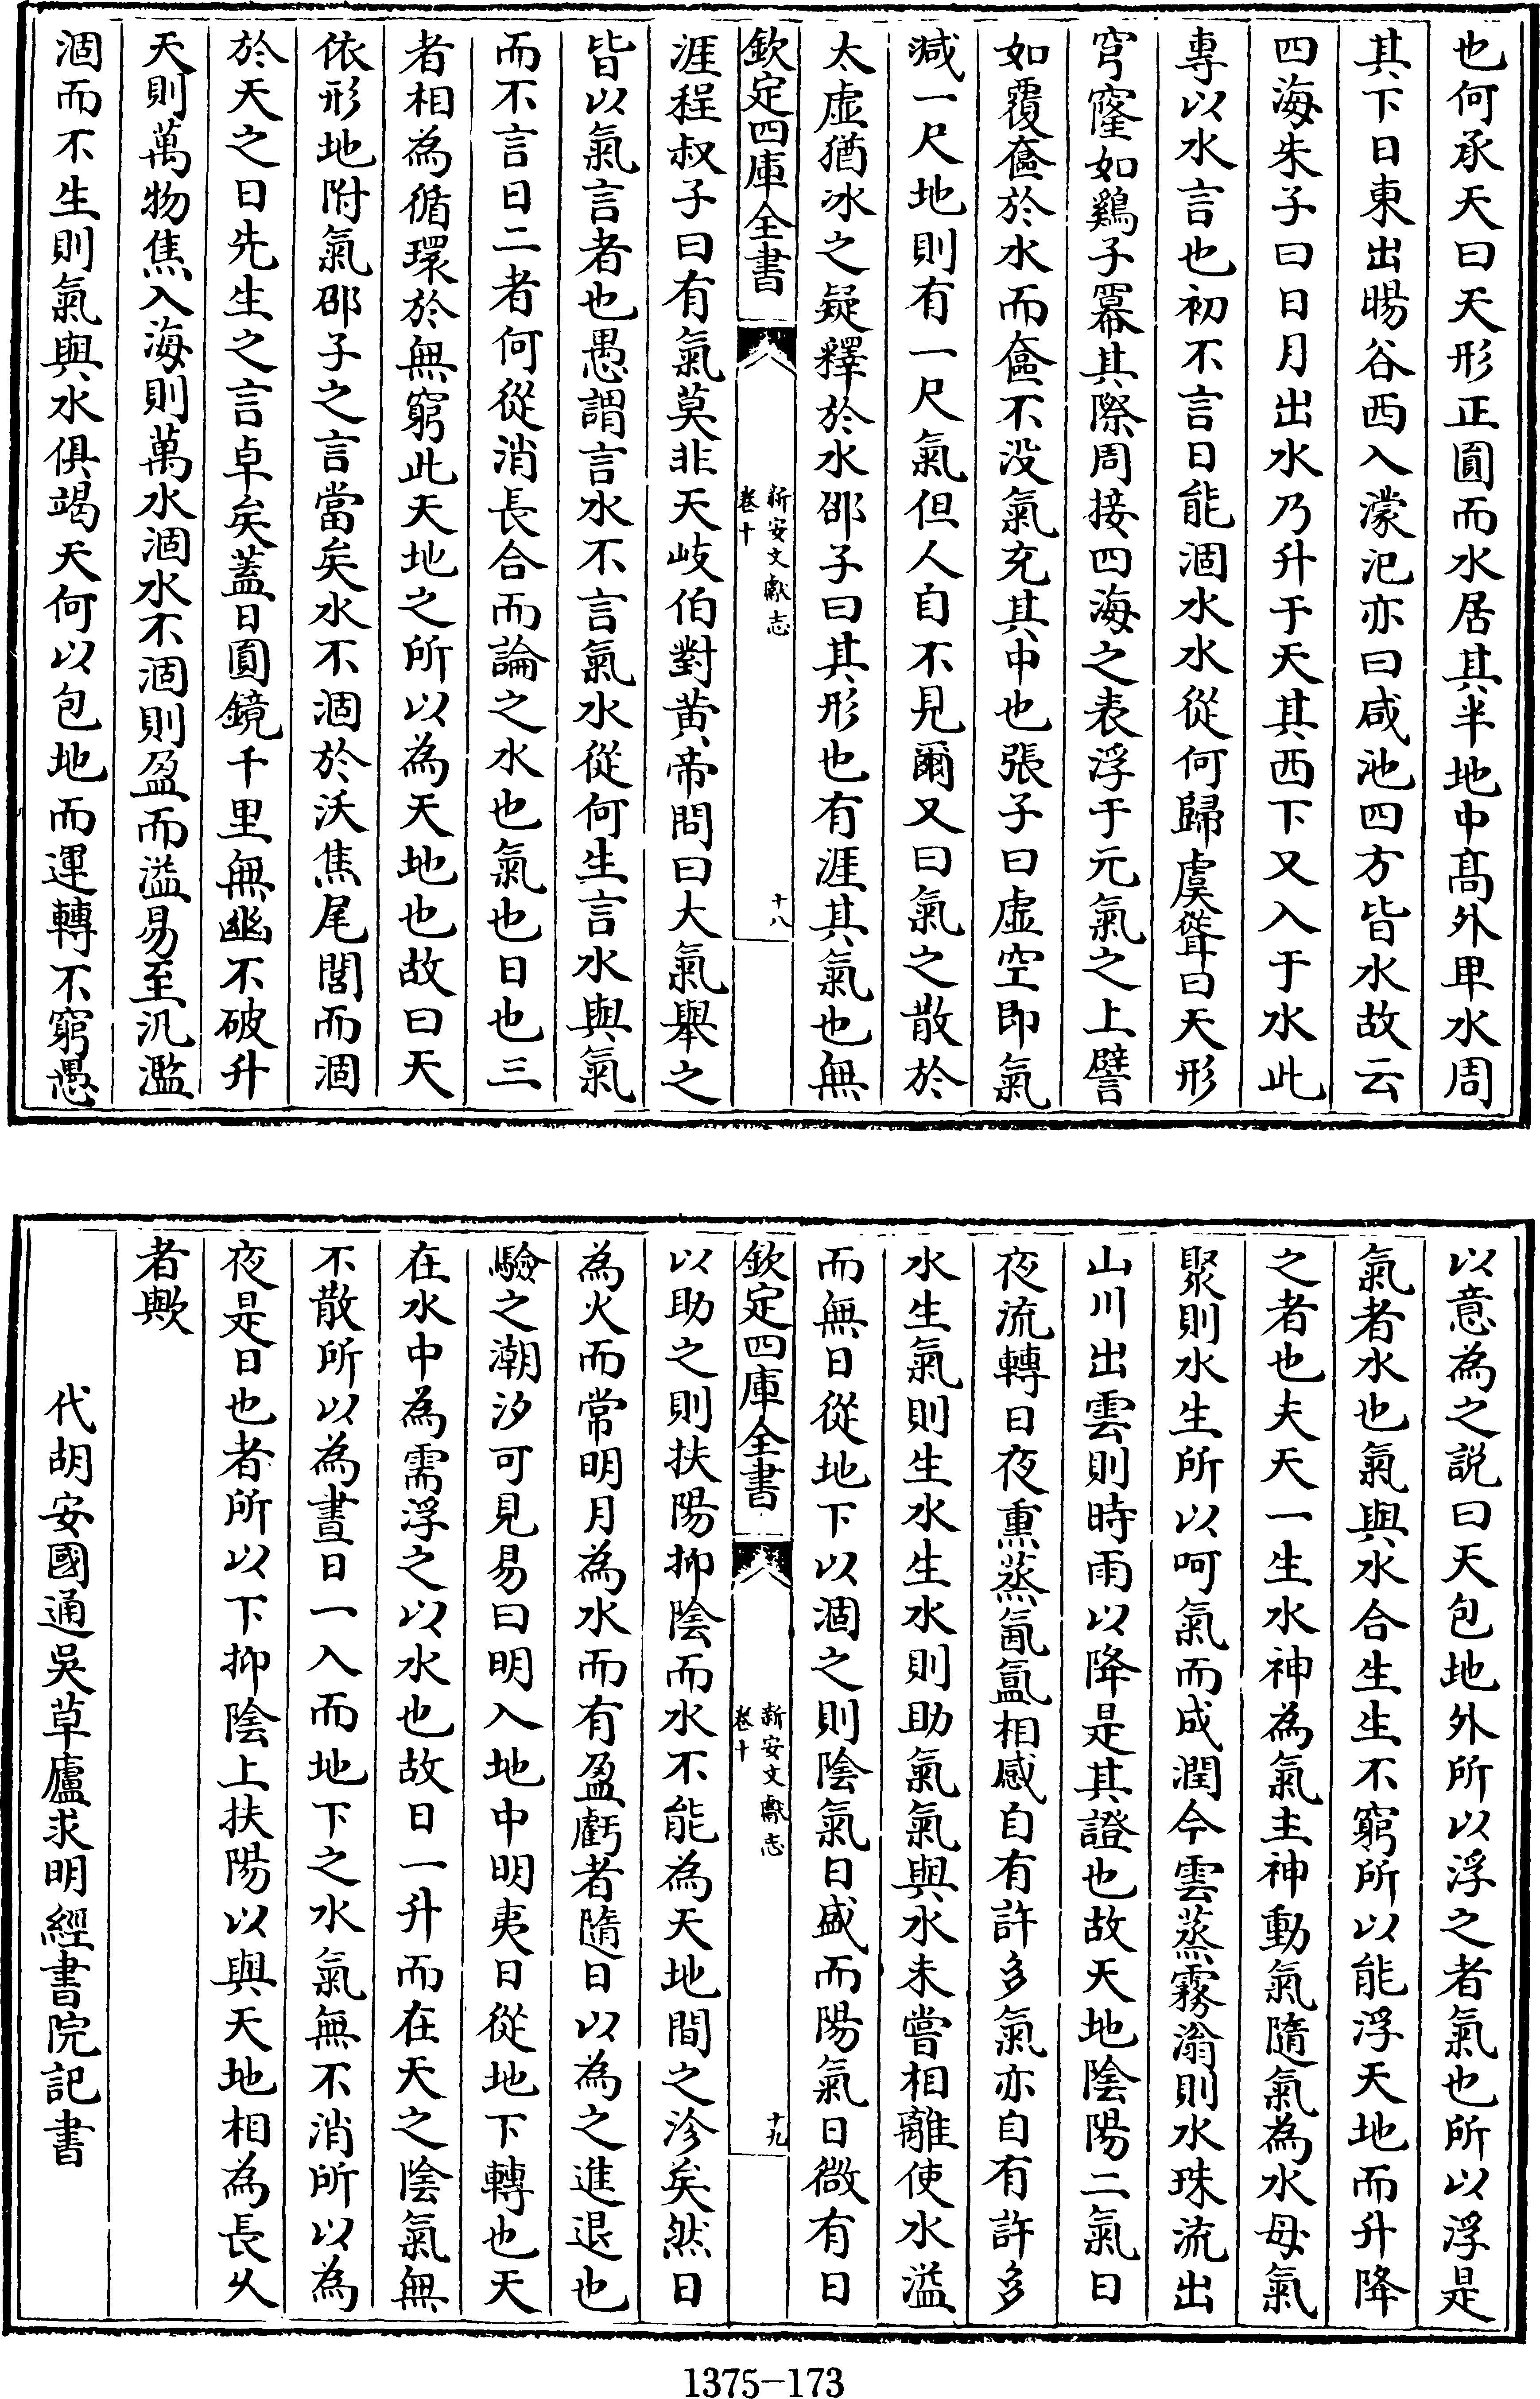 也何承天曰天形正圓而水居其半地中髙外卑水周
其下日東出暘谷西入濛汜亦曰咸池四方皆水故云
四海朱子曰日月出水乃升于天其西下又入于水此
專以水言也初不言日能涸水水從何歸虞聳曰天形
穹窿如鷄子幂其際周接四海之表浮于元氣之上譬
如覆奩於水而奩不没氣充其中也張子曰虚空即氣
減一尺地則有一尺氣但人自不見爾又曰氣之散於
太虚猶冰之疑釋於水邵子曰其形也有涯其氣也無
欽定四庫全書
新安文獻志
卷十
十八
涯程叔子曰有氣莫非天岐伯對黄帝問曰大氣舉之
皆以氣言者也愚謂言水不言氣水從何生言水與氣
而不言日二者何從消長合而論之水也氣也日也三
者相為循環於無窮此天地之所以為天地也故曰天
依形地附氣邵子之言當矣水不涸於沃焦尾閭而涸
於天之日先生之言卓矣蓋日圓鏡千里無幽不破升
天則萬物焦入海則萬水涸水不涸則盈而溢易至汎濫
涸而不生則氣與水俱竭天何以包地而運轉不窮愚
以意為之説曰天包地外所以浮之者氣也所以浮是
氣者水也氣與水合生生不窮所以能浮天地而升降
之者也夫天一生水神為氣主神動氣隨氣為水母氣
聚則水生所以呵氣而成潤今雲蒸霧滃則水珠流出
山川出雲則時雨以降是其證也故天地陰陽二氣日
夜流轉日夜熏蒸氤氲相感自有許多氣亦自有許多
水生氣則生水生水則助氣氣與水未嘗相離使水溢
而無日從地下以涸之則陰氣日盛而陽氣日微有日
欽定四庫全書
新安文獻志
卷十
十九
以助之則扶陽抑陰而水不能為天地間之沴矣然日
為火而常明月為水而有盈虧者隨日以為之進退也
驗之潮汐可見易曰明入地中明夷日從地下轉也天
在水中為需浮之以水也故日一升而在天之陰氣無
不散所以為晝日一入而地下之水氣無不消所以為
夜是日也者所以下抑陰上扶陽以與天地相為長久
者歟
代胡安國通吳草廬求明經書院記書
1375-173